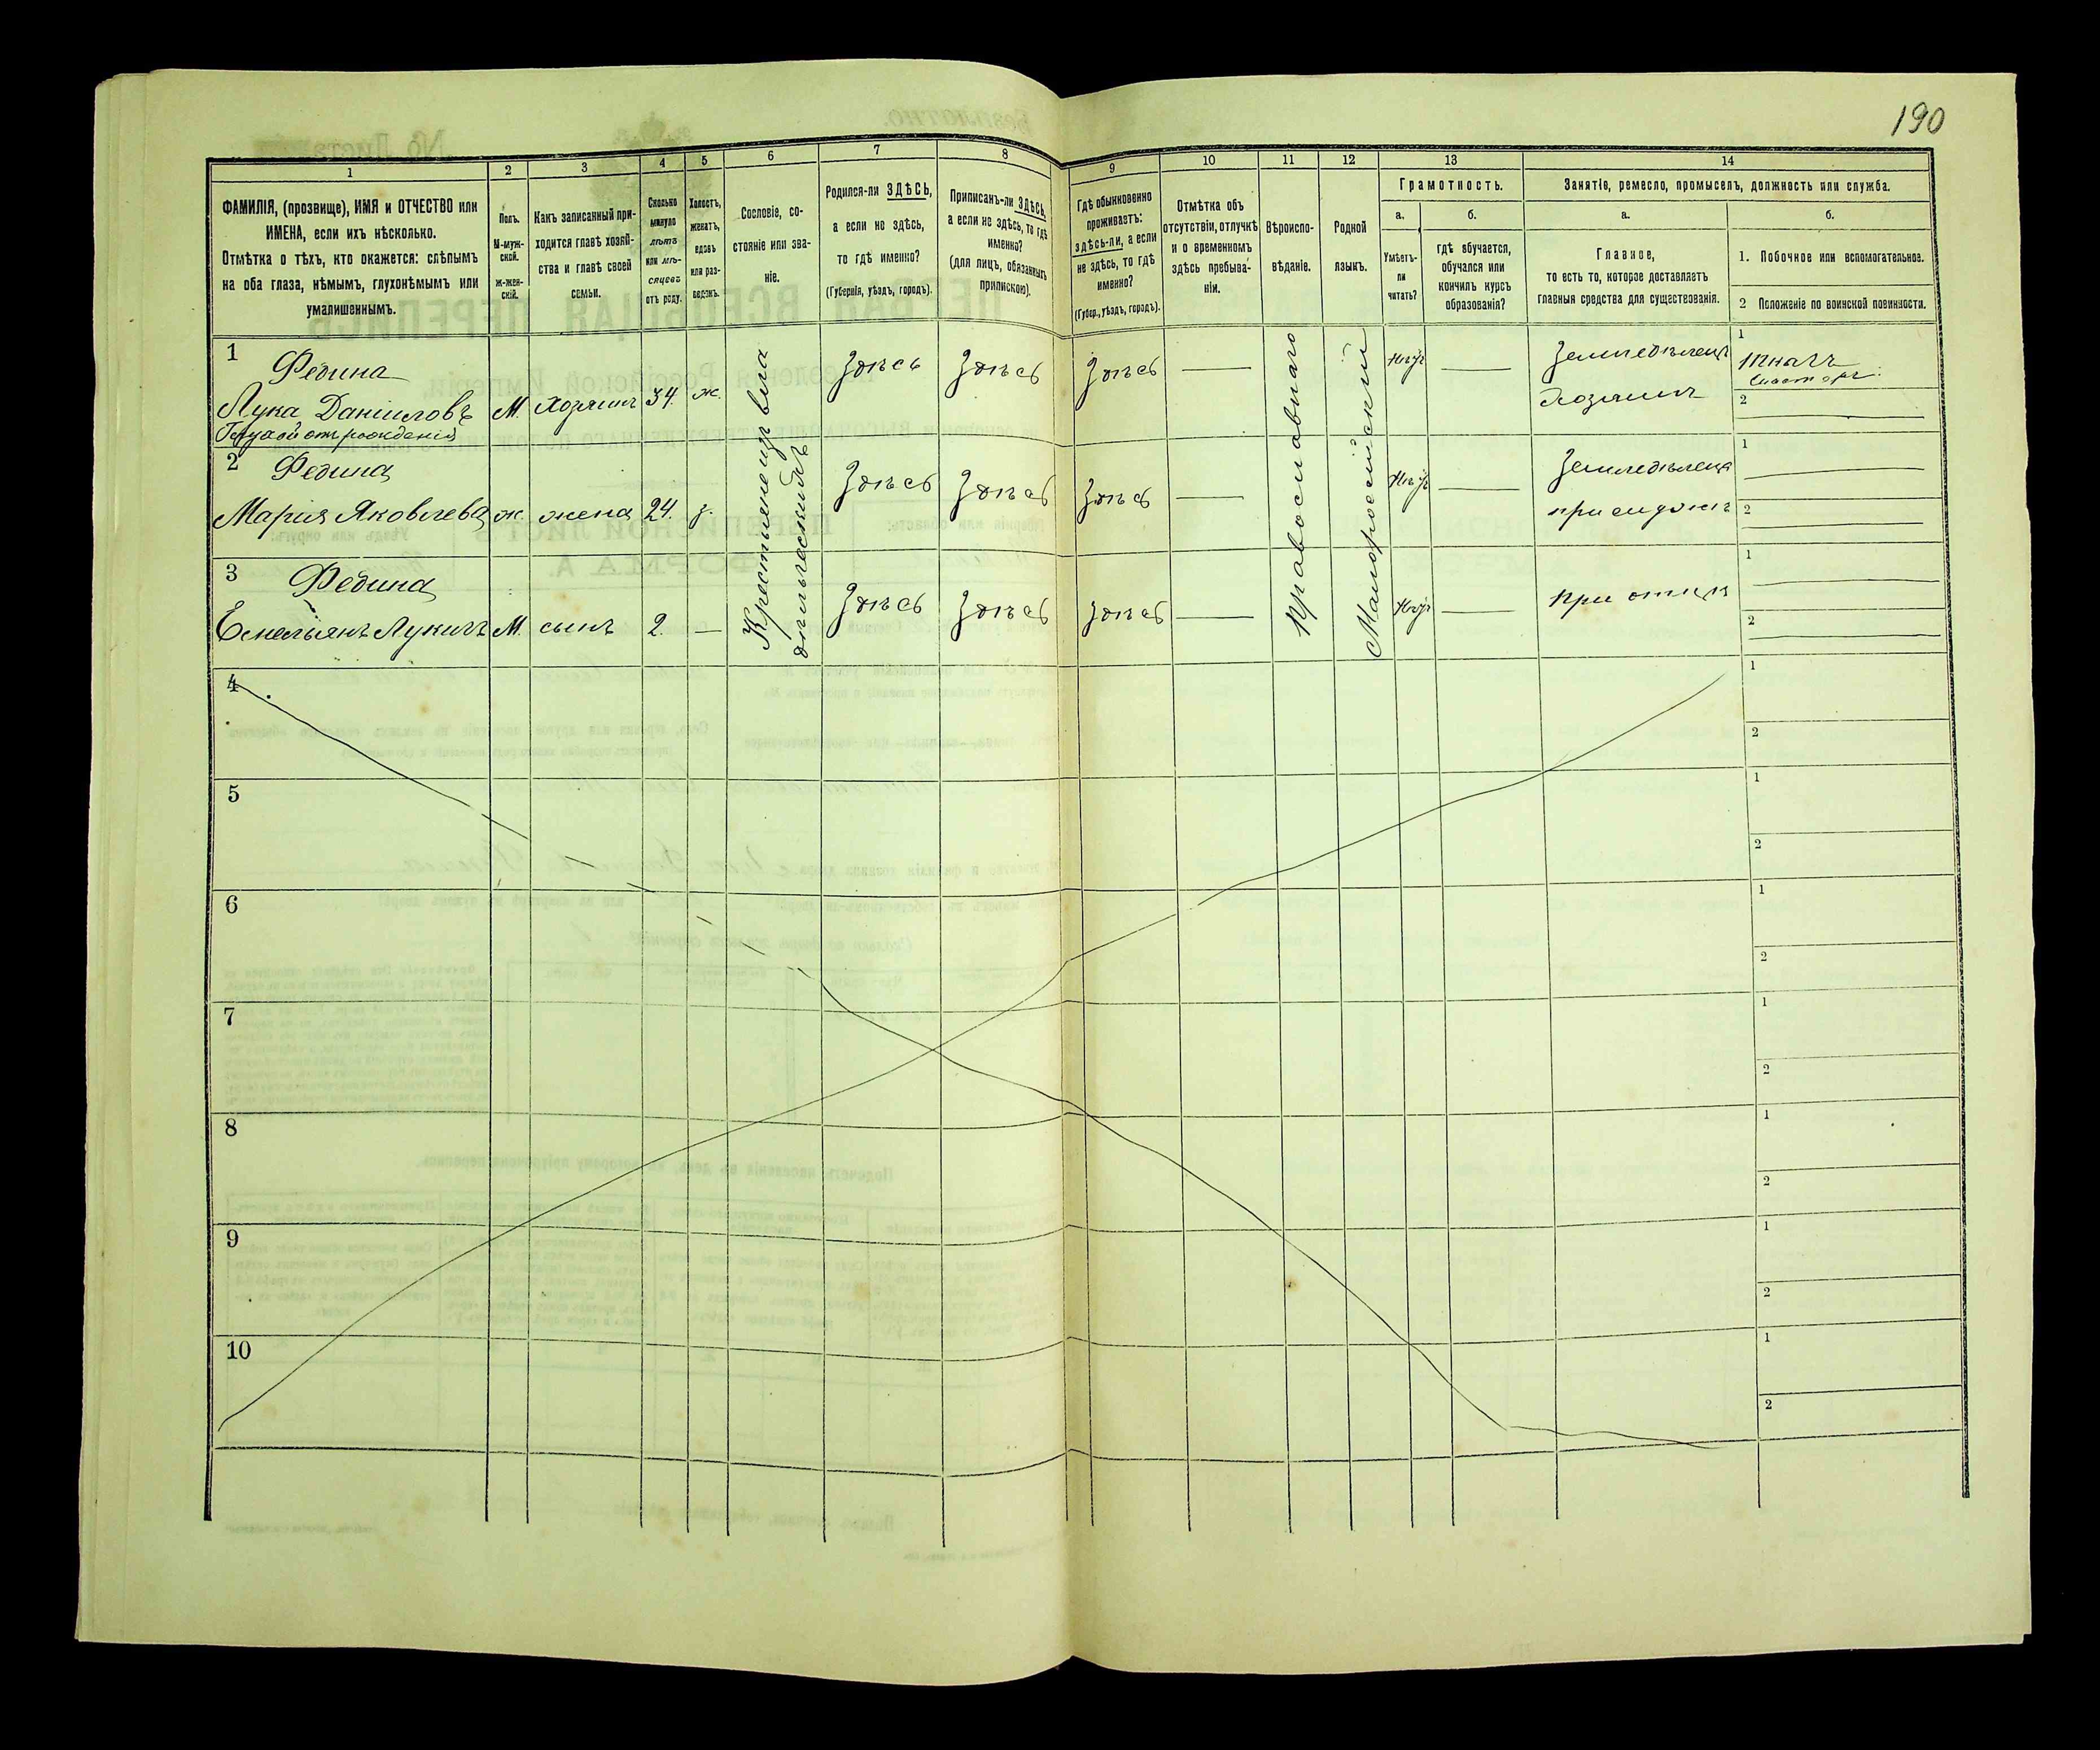 190
1
2
3
4
5
6
7
8
9
10
11
12
13
14
ФАМИЛІЯ, (прозвище), ИМЯ и ОТЧЕСТВО или
ИМЕНА, если ихъ нѣсколько.
Отмѣтка о тѣхъ, кто окажется: слѣпымъ
на оба глаза, нѣмымъ, глухонѣмымъ или
умалишеннымъ.
Полъ.
М-муж-
ской.
ж-жен-
скій.
Какъ записанный при-
ходится главѣ хозяй-
ства и главѣ своей
семьи.
Сколько
минуло
лѣтъ
или мѣ-
сяцевъ
отъ роду.
Холостъ,
женатъ,
вдовъ
или раз-
веденъ.
Сословіе, со-
стояніе или зва-
ніе.
Родился-ли ЗДѢСЬ,
а если не здѣсь,
то гдѣ именно?
(Губернія, уѣздъ, городъ).
Приписанъ-ли ЗДѢСЬ,
а если не здѣсь, то гдѣ
именно?
(для лицъ, обязанныхъ
припискою).
Гдѣ обыкновенно
проживаетъ:
здѣсь-ли, а если
не здѣсь, то гдѣ
именно?
(Губер., уѣздъ, городъ).
Отмѣтка объ
отсутствіи, отлучкѣ
и о временномъ
здѣсь пребыва-
ніи.
Вѣроиспо-
вѣданіе.
Родной
языкъ.
Грамотность.
а.
б.
Умѣетъ-
ли
читать?
гдѣ обучается,
обучался или
кончилъ курсъ
образованія?
Занятіе, ремесло, промыселъ, должность или служба.
а.
б.
Главное,
то есть то, которое доставляетъ
главныя средства для существованія.
1. Побочное или вспомогательное.
2 Положеніе по воинской повинности.
1
Федина
Лука Даніиловъ
Глухой отъ рожденія
М.
Хозяинъ
34.
ж.
Здѣсь
Здѣсь
Здѣсь
Нѣтъ
Земледѣлецъ
Хозяинъ
1
Ткачъ
2
2
Федина
Марія Яковлева
ж.
жена
24
з.
Здѣсь
Здѣсь
Здѣсь
Нѣтъ
Земледѣлецъ
при мужѣ
1
2
3
Федина
Емельянъ Лукичъ
М.
сынъ
2.
Здѣсь
Здѣсь
Здѣсь
Нѣтъ
при отцѣ
1
2
Православнаго
Малороссійскій
4
1
2
5
1
2
6
1
2
7
1
2
8
1
2
9
1
2
10
1
2